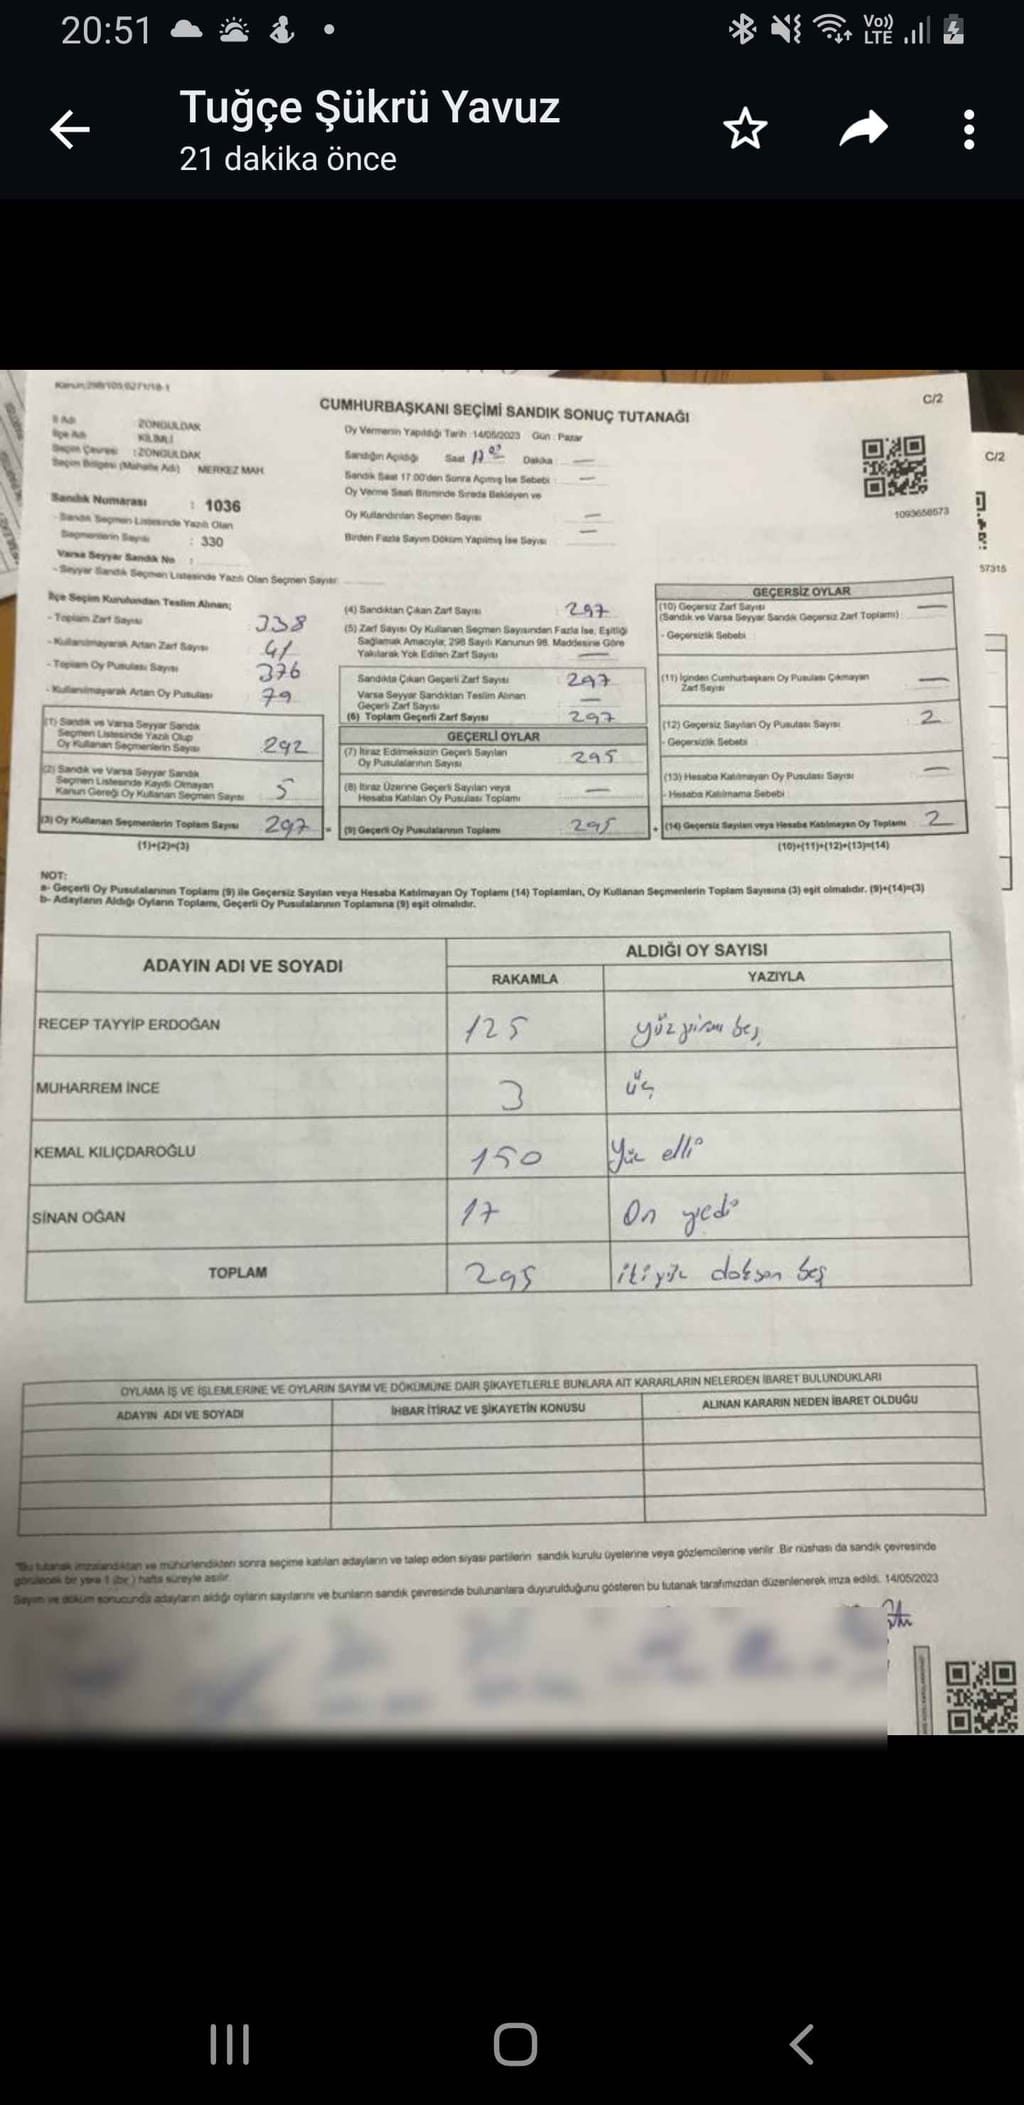 20:51
Vo)) LTE
Tuğçe Şükrü Yavuz
21 dakika önce
C/2
CUMHURBAŞKANI SEÇİMİ SANDIK SONUÇ TUTANAĞI
İl Adı : ZONGULDAK
İlçe Adı : KİLİMLİ
Seçim Çevresi : ZONGULDAK
Seçim Bölgesi (Mahalle Adı) MERKEZ MAH.
Sandık Numarası : 1036
- Sandık Seçmen Listesinde Yazılı Olan
Seçmenlerin Sayısı : 330
Varsa Seyyar Sandık No :
- Seyyar Sandık Seçmen Listesinde Yazılı Olan Seçmen Sayısı:
Oy Vermenin Yapıldığı Tarih : 14/05/2023 Gün : Pazar
Sandığın Açıldığı Saat 17 Dakika —
Sandık Saat 17.00'den Sonra Açımış İse Sebebi : —
Oy Verme Saati Bitiminde Sırada Bekleyen ve
Oy Kullandırılan Seçmen Sayısı —
Birden Fazla Sayım Döküm Yapılmış İse Sayısı —
1093656573
C/2
57315
İlçe Seçim Kurulundan Teslim Alınan;
- Toplam Zarf Sayısı 338
- Kullanılmayarak Artan Zarf Sayısı 41
- Toplam Oy Pusulası Sayısı 376
- Kullanılmayarak Artan Oy Pusulası 79
(1) Sandık ve Varsa Seyyar Sandık
Seçmen Listesinde Yazılı Olup
Oy Kullanan Seçmenlerin Sayısı 292
(2) Sandık ve Varsa Seyyar Sandık
Seçmen Listesinde Kayıtlı Olmayan
Kanun Gereği Oy Kullanan Seçmen Sayısı 5
(3) Oy Kullanan Seçmenlerin Toplam Sayısı 297
(1)+(2)=(3)
(4) Sandıktan Çıkan Zarf Sayısı 297
(5) Zarf Sayısı Oy Kullanan Seçmen Sayısından Fazla İse, Eşitliği
Sağlamak Amacıyla; 298 Sayılı Kanunun 98. Maddesine Göre
Yakılarak Yok Edilen Zarf Sayısı —
Sandıkta Çıkan Geçerli Zarf Sayısı 297
Varsa Seyyar Sandıktan Teslim Alınan
Geçerli Zarf Sayısı —
(6) Toplam Geçerli Zarf Sayısı 297
GEÇERLİ OYLAR
(7) İtiraz Edilmeksizin Geçerli Sayılan
Oy Pusulalarının Sayısı 295
(8) İtiraz Üzerine Geçerli Sayılan veya
Hesaba Katılan Oy Pusulası Toplamı —
= (9) Geçerli Oy Pusulalarının Toplamı 295
GEÇERSİZ OYLAR
(10) Geçersiz Zarf Sayısı —
(Sandık ve Varsa Seyyar Sandık Geçersiz Zarf Toplamı)
- Geçersizlik Sebebi
(11) İçinden Cumhurbaşkanı Oy Pusulası Çıkmayan
Zarf Sayısı —
(12) Geçersiz Sayılan Oy Pusulası Sayısı 2
- Geçersizlik Sebebi
(13) Hesaba Katılmayan Oy Pusulası Sayısı —
- Hesaba Katılmama Sebebi
+ (14) Geçersiz Sayılan veya Hesaba Katılmayan Oy Toplamı 2
(10)+(11)+(12)+(13)=(14)
NOT:
a- Geçerli Oy Pusulalarının Toplamı (9) ile Geçersiz Sayılan veya Hesaba Katılmayan Oy Toplamı (14) Toplamları, Oy Kullanan Seçmenlerin Toplam Sayısına (3) eşit olmalıdır. (9)+(14)=(3)
b- Adayların Aldığı Oyların Toplamı, Geçerli Oy Pusulalarının Toplamına (9) eşit olmalıdır.
ADAYIN ADI VE SOYADI
ALDIĞI OY SAYISI
RAKAMLA YAZIYLA
RECEP TAYYİP ERDOĞAN 125 yüz yirmi beş
MUHARREM İNCE 3 üç
KEMAL KILIÇDAROĞLU 150 Yüz elli
SİNAN OĞAN 17 On yedi
TOPLAM 295 ikiyüz doksan beş
OYLAMA İŞ VE İŞLEMLERİNE VE OYLARIN SAYIM VE DÖKÜMÜNE DAİR ŞİKAYETLERLE BUNLARA AİT KARARLARIN NELERDEN İBARET BULUNDUKLARI
ADAYIN ADI VE SOYADI İHBAR İTİRAZ VE ŞİKAYETİN KONUSU ALINAN KARARIN NEDEN İBARET OLDUĞU
*Bu tutanak imzalandıktan ve mühürlendikten sonra seçime katılan adayların ve talep eden siyasi partilerin sandık kurulu üyelerine veya gözlemcilerine verilir. Bir nüshası da sandık çevresinde
görülecek bir yere 1 (bir) hafta süreyle asılır.
Sayım ve döküm sonucunda adayların aldığı oyların sayılarını ve bunların sandık çevresinde bulunanlara duyurulduğunu gösteren bu tutanak tarafımızdan düzenlenerek imza edildi. 14/05/2023